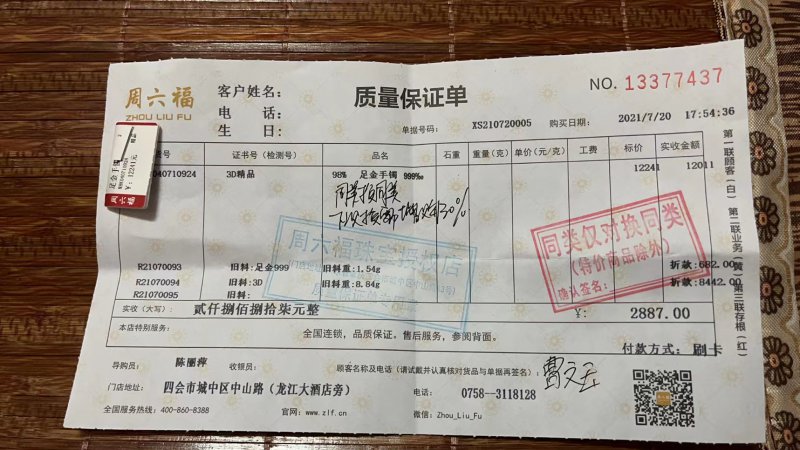 周六福
ZHOU LIU FU
客户姓名:
电 话:
生 日:
质量保证单
NO. 13377437
单据号码: XS210720005 购买日期: 2021/7/20 17:54:36
货号 证书号(检测号) 品名 石重 重量(克) 单价(元/克) 工费 标价 实收金额
040710924 3D精品 98% 足金手镯 999‰ 12241 12011
足金手镯
¥: 12241元
周六福
同类换同类
30%
周六福珠宝授权店
同类仅对换同类
(特价商品除外)
确认签名:
R21070093 旧料:足金999 旧料重:1.54g 折款:682.00
R21070094 旧料:3D 旧料重:8.84g 折款:8442.00
R21070095 旧料:
实收(大写): 贰仟捌佰捌拾柒元整 ¥: 2887.00
本店特别服务: 全国连锁,品质保证,售后服务,参阅背面。 付款方式: 刷卡
导购员: 陈丽萍 收银员: 顾客名称及电话(请试戴并认真核对货品与单据再签名):
门店地址: 四会市城中区中山路(龙江大酒店旁) 电话: 0758--3118128
全国服务热线: 400-860-8388 官网: www.zlf.cn 微信: Zhou_Liu_Fu
第一联顾客(白) 第二联业务(黄) 第三联存根(红)